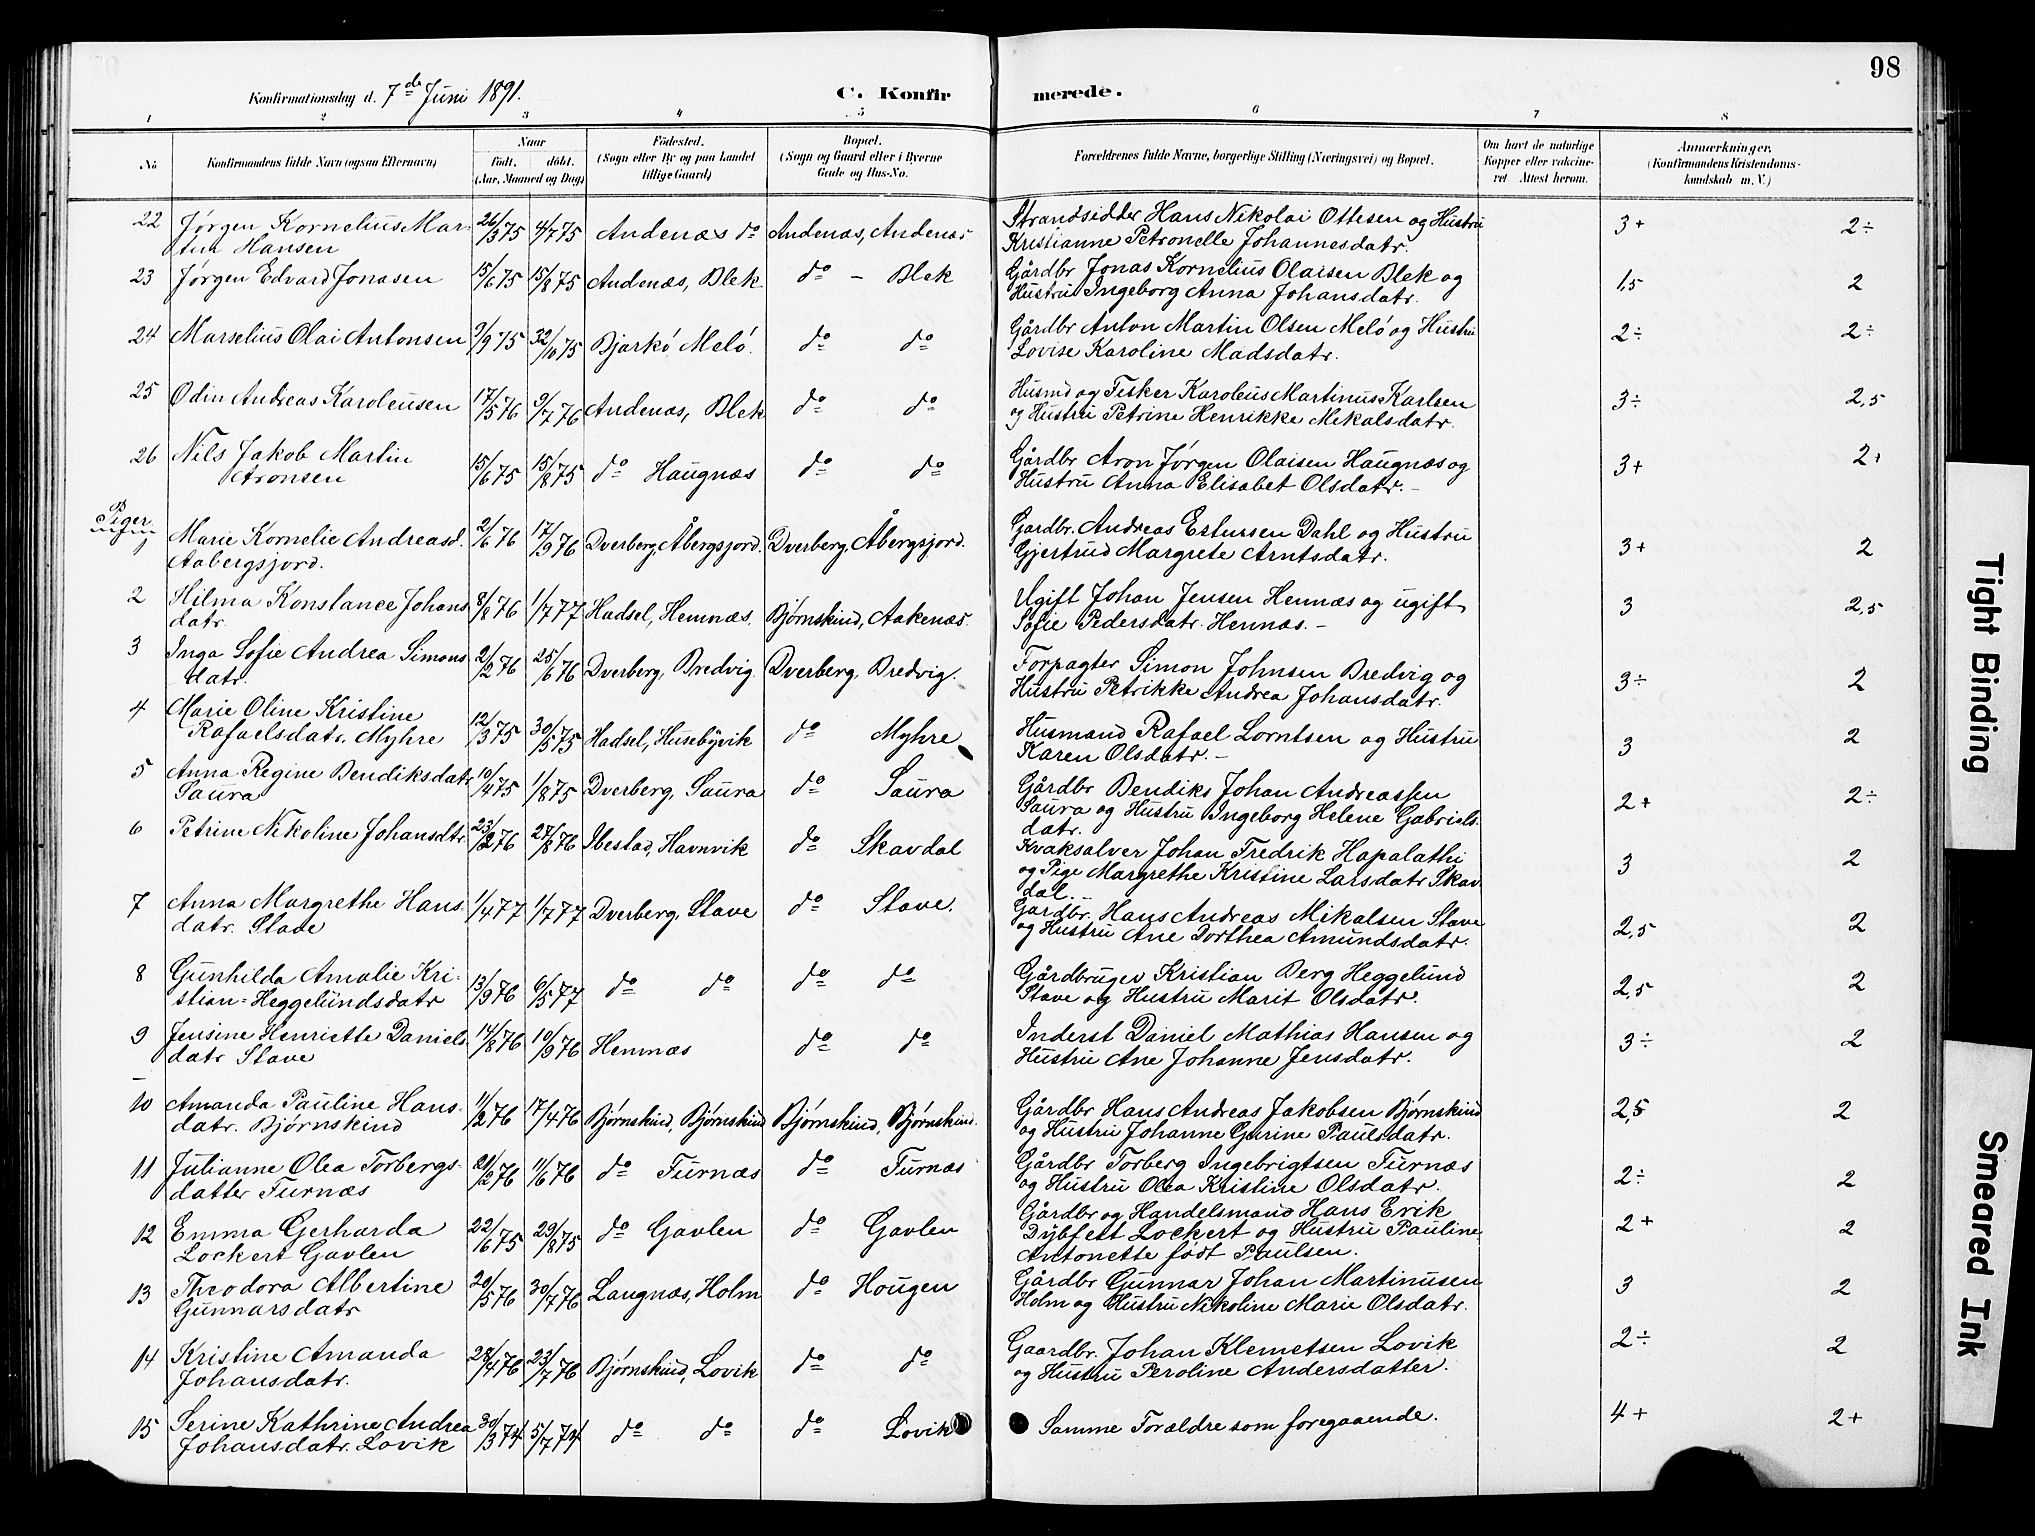 98
Konfirmationsdag d. 7de Juni 1891.
C. Konfirmerede.
1 2 3 4 5 6 7 8
No
Konfirmandens fulde Navn (ogsaa Efternavn)
Naar
født. døbt.
(Aar, Maaned og Dag)
Fødested.
(Sogn eller By og paa Landet
tillige Gaard)
Bopæl.
(Sogn og Gaard eller i Byerne
Gade og Hus-No.
Forældrenes fulde Navne, borgerlige Stilling (Næringsvei) og Bopæl.
Om havt de naturlige
Kopper eller vakcine-
ret. Attest herom.
Anmærkninger.
(Konfirmandens Kristendoms-
kundskab m. V.)
22 Jørgen Kornelius Mar- 26/3 75 4/7 75 Andenæs do Andenæs, Andenæs Strandsidder Hans Nikolai Ottesen og Hustru 3+ 2÷
tin Hansen Kristianne Petronelle Johannesdatr.
23 Jørgen Edvard Jonasen 15/6 75 15/8 75 Andenæs, Blek do – Blek Gårdbr Jonas Kornelius Olaisen Blek og 1,5 2
Hustru Ingeborg Anna Johansdatr.
24 Marselius Olai Antonsen 9/9 75 32/10 75 Bjarkö Melö. do do Gårdbr Anton Martin Olsen Melö og Hustru 2÷ 2÷
Lovise Karoline Madsdatr.
25 Odin Andreas Karoleusen 17/5 76 9/7 76 Andenæs, Blek do do Husmd og Fisker Karoleus Martinus Karlsen 3÷ 2,5
og Hustru Petrine Henrikke Mekalsdatr.
26 Nils Jakob Martin 15/6 75 15/8 75 do Haugnæs do do Gårdbr Aron Jørgen Olaisen Haugnæs og 3+ 2+
Aronsen Hustru Anna Elisabet Olsdatr. –
Piger
1 Marie Kornelie Andreasd. 2/6 76 17/9 76 Dverberg, Åbergsjord. Dverberg, Åbergsjord. Gardbr. Andreas Estensen Dahl og Hustru 3+ 2
Aabergsjord. Gjertrud Margrete Arntsdatr.
2 Hilma Konstance Johans 8/8 76 1/7 77 Hadsel, Hennæs. Bjørnskind, Aakenæs. Ugift Johan Jensen Hennæs og ugift 3 2,5
datr. Sofie Pedersdatr. Hennæs. –
3 Inga Sofie Andrea Simons 2/2 76 25/6 76 Dverberg, Bredvig. Dverberg, Bredvig. Forpagter Simon Johnsen Bredvig og 3÷ 2
datr. Hustru Petrikke Andrea Johansdatr.
4 Marie Oline Kristine
Rafaelsdatr. Myhre 12/3 75 30/5 75 Hadsel, Husebÿvik do Myhre Husmand Rafael Lorntsen og Hustru 3 2
Karen Olsdatr. –
5 Anna Regine Bendiksdatr 10/4 75 1/8 75 Dverberg, Saura do Saura Gårdbr Bendiks Johan Andreassen 2+ 2÷
Saura Saura og Hustru Ingeborg Helene Gabriels-
datr.
6 Petrine Nikoline Johansdtr. 23/2 76 27/8 76 Ibestad, Havnvik do Skavdal Kvaksalver Johan Fredrik Hapalathi 3 2
og Pige Margrethe Kristine Larsdatr Skav
dal.
7 Anna Margrethe Hans 1/4 77 1/7 77 Dverberg, Stave do Stave. Gardbr. Hans Andreas Mikalsen Stave 2,5 2
datr. Stave og Hustru Ane Dorthea Amundsdatr.
8 Gunhilda Amalie Kri- 13/9 76 6/5 77 do do do do Gårdbruger Kristian Berg Heggelund 2,5 2
stian=Heggelundsdatr Stave og Hustru Marit Olsdatr.
9 Jensine Henriette Daniels 14/8 76 10/9 76 Hennæs do do Inderst Daniel Mathias Hansen og 3÷ 2
datr Stave Hustru Ane Johanne Jensdatr.
10 Amanda Pauline Hans- 11/2 76 17/4 76 Bjørnskind, Bjørnskind Bjørnskind, Bjørnskind. Gårdbr Hans Andreas Jakobsen Bjørnskind 2,5 2
datr. Bjørnskind og Hustru Johanne Gurine Paulsdatr.
11 Julianne Olea Torbergs- 21/2 76 11/6 76 do Furnæs do Furnæs Gårdbr Torberg Ingebrigtsen Furnæs 2÷ 2
datter Furnæs og Hustru Olea Kristine Olsdatr.
12 Emma Gerharda 22/6 75 29/8 75 do Gavlen do Gavlen Gårdbr og Handelsmand Hans Erik 2+ 2
Lockert Gavlen Dybfest Lockert og Hustru Pauline
Antonette født Paulsen.
13 Theodora Albertine 20/5 76 30/7 76 Langnæs, Holm do Hougen Gårdbr Gunnar Johan Martinusen 3 2
Gunnarsdatr Holm og Hustru Nikoline Marie Olsdatr.
14 Kristine Amanda 28/4 76 23/7 76 Bjørnskind, Lovik do do Gaardbr. Johan Klemetsen Lovik 2÷ 2
Johansdatr. og Hustru Peroline Andersdatter.
15 Serine Kathrine Andrea 30/3 74 5/7 74 do do do Lovik Samme Forældre som foregaaende. 4+ 2+
Johansdatr. Lovik
Tight Binding
Smeared Ink